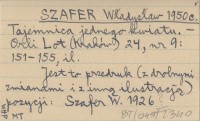 SZAFER Władysław 1950 c.
Tajemnica jednego kwiatu. —
Orli Lot (Kraków) 24, nr 9:
151-155, il.
Jest to przedruk (z drobnymi
zmianami i z inną ilustracją)
pozycji: Szafer W. 1926
MT